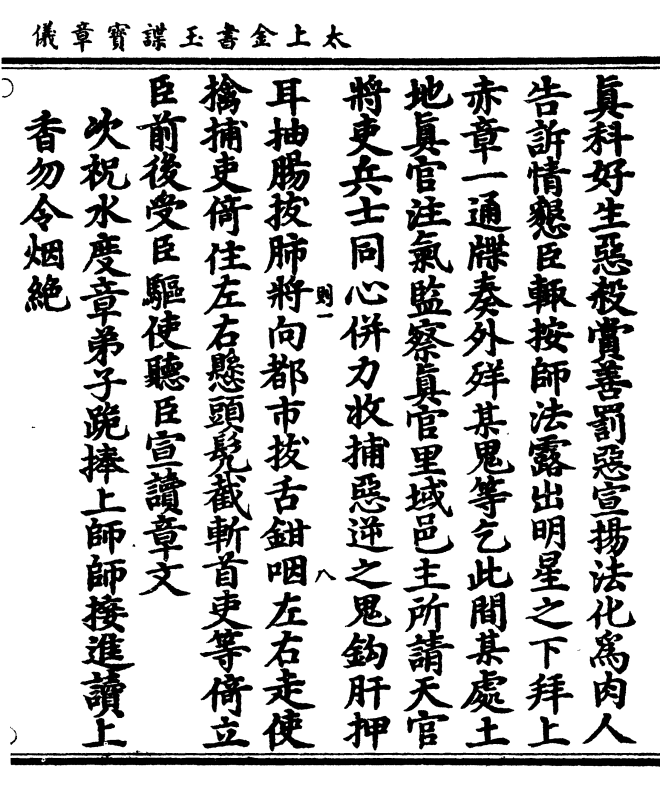 太上金書玉諜寶章儀
眞科好生惡殺賞善罰惡宣揚法化爲肉人
告訢情懇臣輙按師法露出明星之下拜上
赤章一通牒奏外殍某鬼等乞此間某處土
地眞官注氣監察眞官里域邑主所請天官
將吏兵士同心併力收捕惡逆之鬼鈎肝押
則一
八
耳抽腸拔肺將向都市拔舌鉗咽左右走使
擒捕吏倚住左右懸頭髡截斬首吏等倚立
臣前後受臣驅使聽臣宣讀章文
次祝水度章弟子跪捧上師師接進讀上
香勿令烟絶